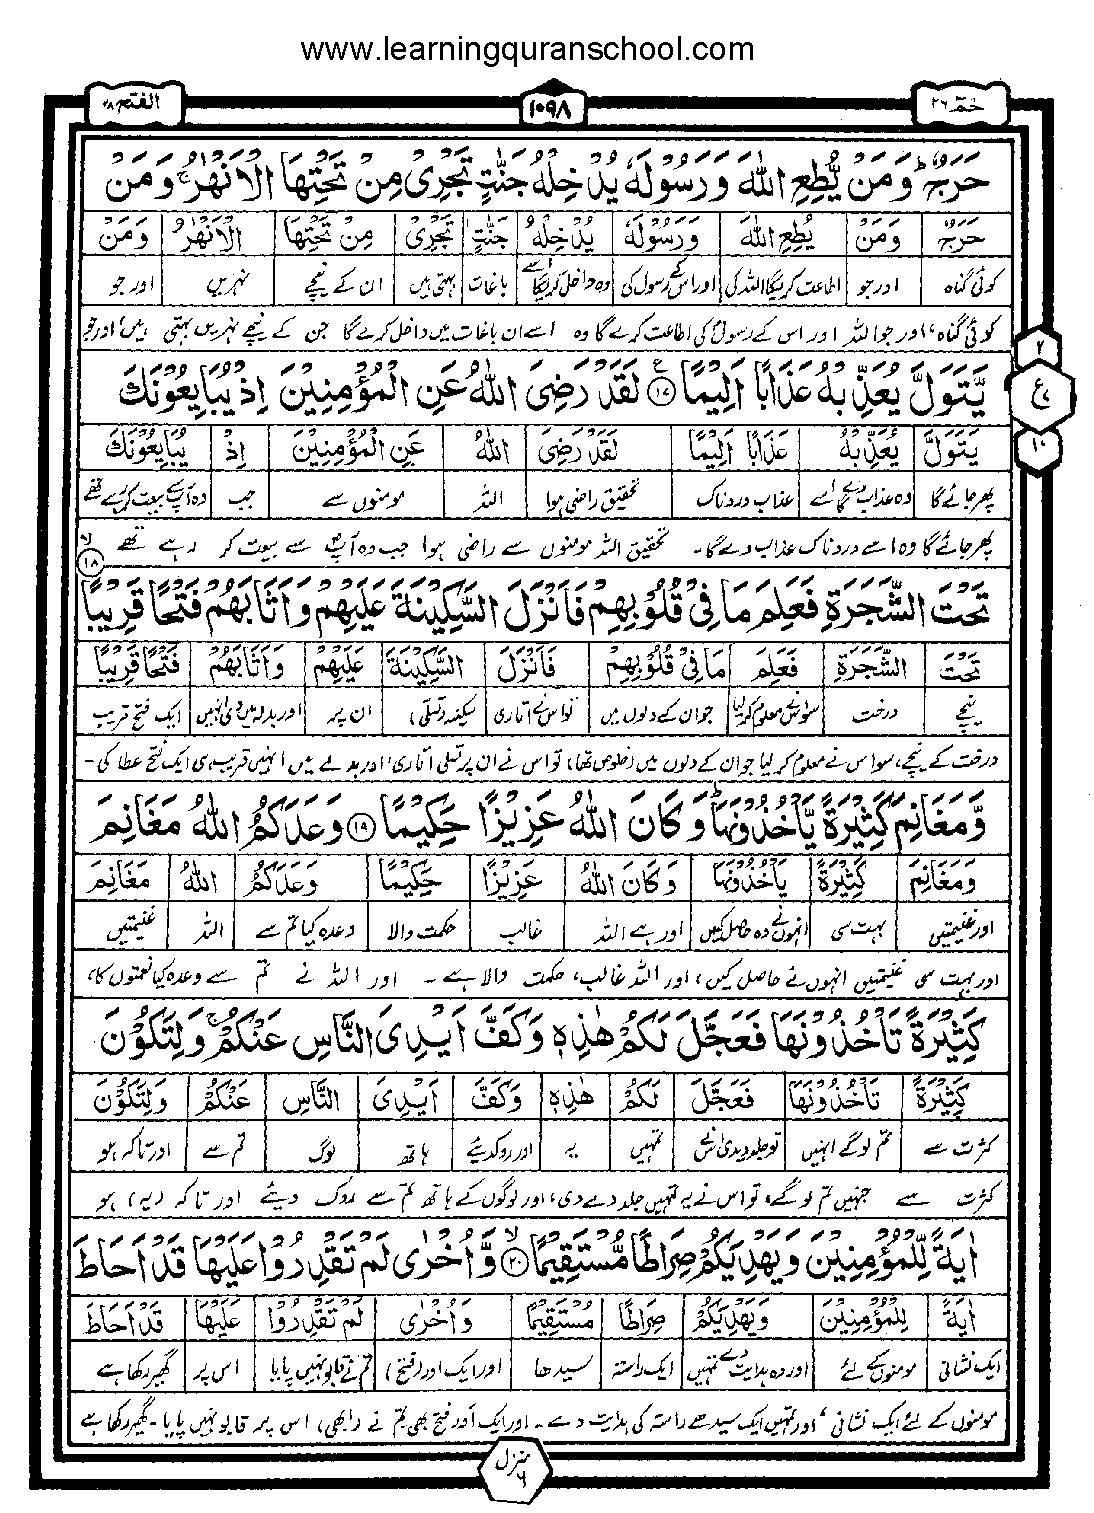 www.learningquranschool.com
الفتح ۴۸
۱۰۹۸
حٰمٓ ۲۶
حَرَجٌ ؕ وَمَنْ يُّطِعِ اللّٰهَ وَرَسُوْلَهٗ يُدْخِلْهُ جَنّٰتٍ تَجْرِيْ مِنْ تَحْتِهَا الْاَنْهٰرُ ۚ وَمَنْ
حَرَجٌ وَمَنْ يُطِعِ اللّٰهَ وَرَسُوْلَهٗ يُدْخِلْهُ جَنّٰتٍ تَجْرِيْ مِنْ تَحْتِهَا الْاَنْهٰرُ وَمَنْ
کوئی گناہ اور جو اطاعت کریگا اللہ کی اور اس کے رسول کی وہ داخل کریگا اسے باغات بہتی ہیں ان کے نیچے نہریں اور جو
کوئی گناہ، اور جو اللہ اور اس کے رسول کی اطاعت کرے گا وہ اسے ان باغات میں داخل کرے گا جن کے نیچے نہریں بہتی ہیں، اور جو
۲
ع
۷
۱۰
يَّتَوَلَّ يُعَذِّبْهُ عَذَابًا اَلِيْمًا ۝۱۷ ع لَقَدْ رَضِيَ اللّٰهُ عَنِ الْمُؤْمِنِيْنَ اِذْ يُبَايِعُوْنَكَ
يَتَوَلَّ يُعَذِّبْهُ عَذَابًا اَلِيْمًا لَقَدْ رَضِيَ اللّٰهُ عَنِ الْمُؤْمِنِيْنَ اِذْ يُبَايِعُوْنَكَ
پھر جائے گا وہ عذاب دے گا اسے عذاب دردناک تحقیق راضی ہوا اللہ مومنوں سے جب وہ آپ سے بیعت کر رہے تھے
پھر جائے گا وہ اسے دردناک عذاب دے گا۔ تحقیق اللہ مومنوں سے راضی ہوا جب وہ آپ سے بیعت کر رہے تھے
تَحْتَ الشَّجَرَةِ فَعَلِمَ مَا فِيْ قُلُوْبِهِمْ فَاَنْزَلَ السَّكِيْنَةَ عَلَيْهِمْ وَاَثَابَهُمْ فَتْحًا قَرِيْبًا ۝۱۸ۙ
تَحْتَ الشَّجَرَةِ فَعَلِمَ مَا فِيْ قُلُوْبِهِمْ فَاَنْزَلَ السَّكِيْنَةَ عَلَيْهِمْ وَاَثَابَهُمْ فَتْحًا قَرِيْبًا
نیچے درخت سو اس نے معلوم کر لیا جو ان کے دلوں میں تو اس نے اتاری سکینہ (تسلی) ان پر اور بدلہ میں دی انہیں ایک فتح قریب
درخت کے نیچے، سو اس نے معلوم کر لیا جو ان کے دلوں میں (خلوص تھا)، تو اس نے ان پر تسلی اتاری، اور بدلے میں انہیں قریب ہی ایک فتح عطا کی۔
وَّمَغَانِمَ كَثِيْرَةً يَّاْخُذُوْنَهَا ؕ وَكَانَ اللّٰهُ عَزِيْزًا حَكِيْمًا ۝۱۹ وَعَدَكُمُ اللّٰهُ مَغَانِمَ
وَمَغَانِمَ كَثِيْرَةً يَاْخُذُوْنَهَا وَكَانَ اللّٰهُ عَزِيْزًا حَكِيْمًا وَعَدَكُمُ اللّٰهُ مَغَانِمَ
اور غنیمتیں بہت سی انہوں نے وہ حاصل کیں اور ہے اللہ غالب حکمت والا وعدہ کیا تم سے اللہ غنیمتیں
اور بہت سی غنیمتیں انہوں نے حاصل کیں، اور اللہ غالب، حکمت والا ہے۔ اور اللہ نے تم سے وعدہ کیا نعمتوں کا،
كَثِيْرَةً تَاْخُذُوْنَهَا فَعَجَّلَ لَكُمْ هٰذِهٖ وَكَفَّ اَيْدِيَ النَّاسِ عَنْكُمْ ۚ وَلِتَكُوْنَ
كَثِيْرَةً تَاْخُذُوْنَهَا فَعَجَّلَ لَكُمْ هٰذِهٖ وَكَفَّ اَيْدِيَ النَّاسِ عَنْكُمْ وَلِتَكُوْنَ
کثرت سے تم لو گے انہیں تو جلد دیدی اس نے تمہیں یہ اور روک دیئے ہاتھ لوگ تم سے اور تاکہ ہو
کثرت سے جنہیں تم لو گے، تو اس نے یہ تمہیں جلد دے دی، اور لوگوں کے ہاتھ تم سے روک دیئے اور تاکہ (یہ) ہو
اٰيَةً لِّلْمُؤْمِنِيْنَ وَيَهْدِيَكُمْ صِرَاطًا مُّسْتَقِيْمًا ۝۲۰ۙ وَّاُخْرٰى لَمْ تَقْدِرُوْا عَلَيْهَا قَدْ اَحَاطَ
اٰيَةً لِلْمُؤْمِنِيْنَ وَيَهْدِيَكُمْ صِرَاطًا مُسْتَقِيْمًا وَاُخْرٰى لَمْ تَقْدِرُوْا عَلَيْهَا قَدْ اَحَاطَ
ایک نشانی مومنوں کے لئے اور وہ ہدایت دے تمہیں ایک راستہ سیدھا اور ایک اور (فتح) تم نے قابو نہیں پایا اس پر گھیر رکھا ہے
مومنوں کے لئے ایک نشانی، اور تمہیں ایک سیدھے راستہ کی ہدایت دے۔ اور ایک اور فتح بھی، تم نے (ابھی) اس پر قابو نہیں پایا۔ گھیر رکھا ہے
منزل ۶